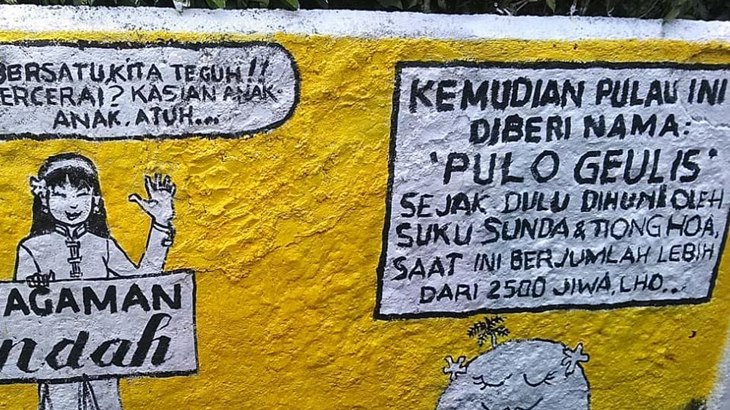 BERSATU KITA TEGUH!!
ERCERAI? KASIAN ANAK-
ANAK, ATUH...
AGAMAN
ndah
KEMUDIAN PULAU INI
DIBERI NAMA:
"PULO GEULIS"
SEJAK DULU DIHUNI OLEH
SUKU SUNDA & TIONG HOA,
SAAT INI BERJUMLAH LEBIH
DARI 2500 JIWA, LHO...